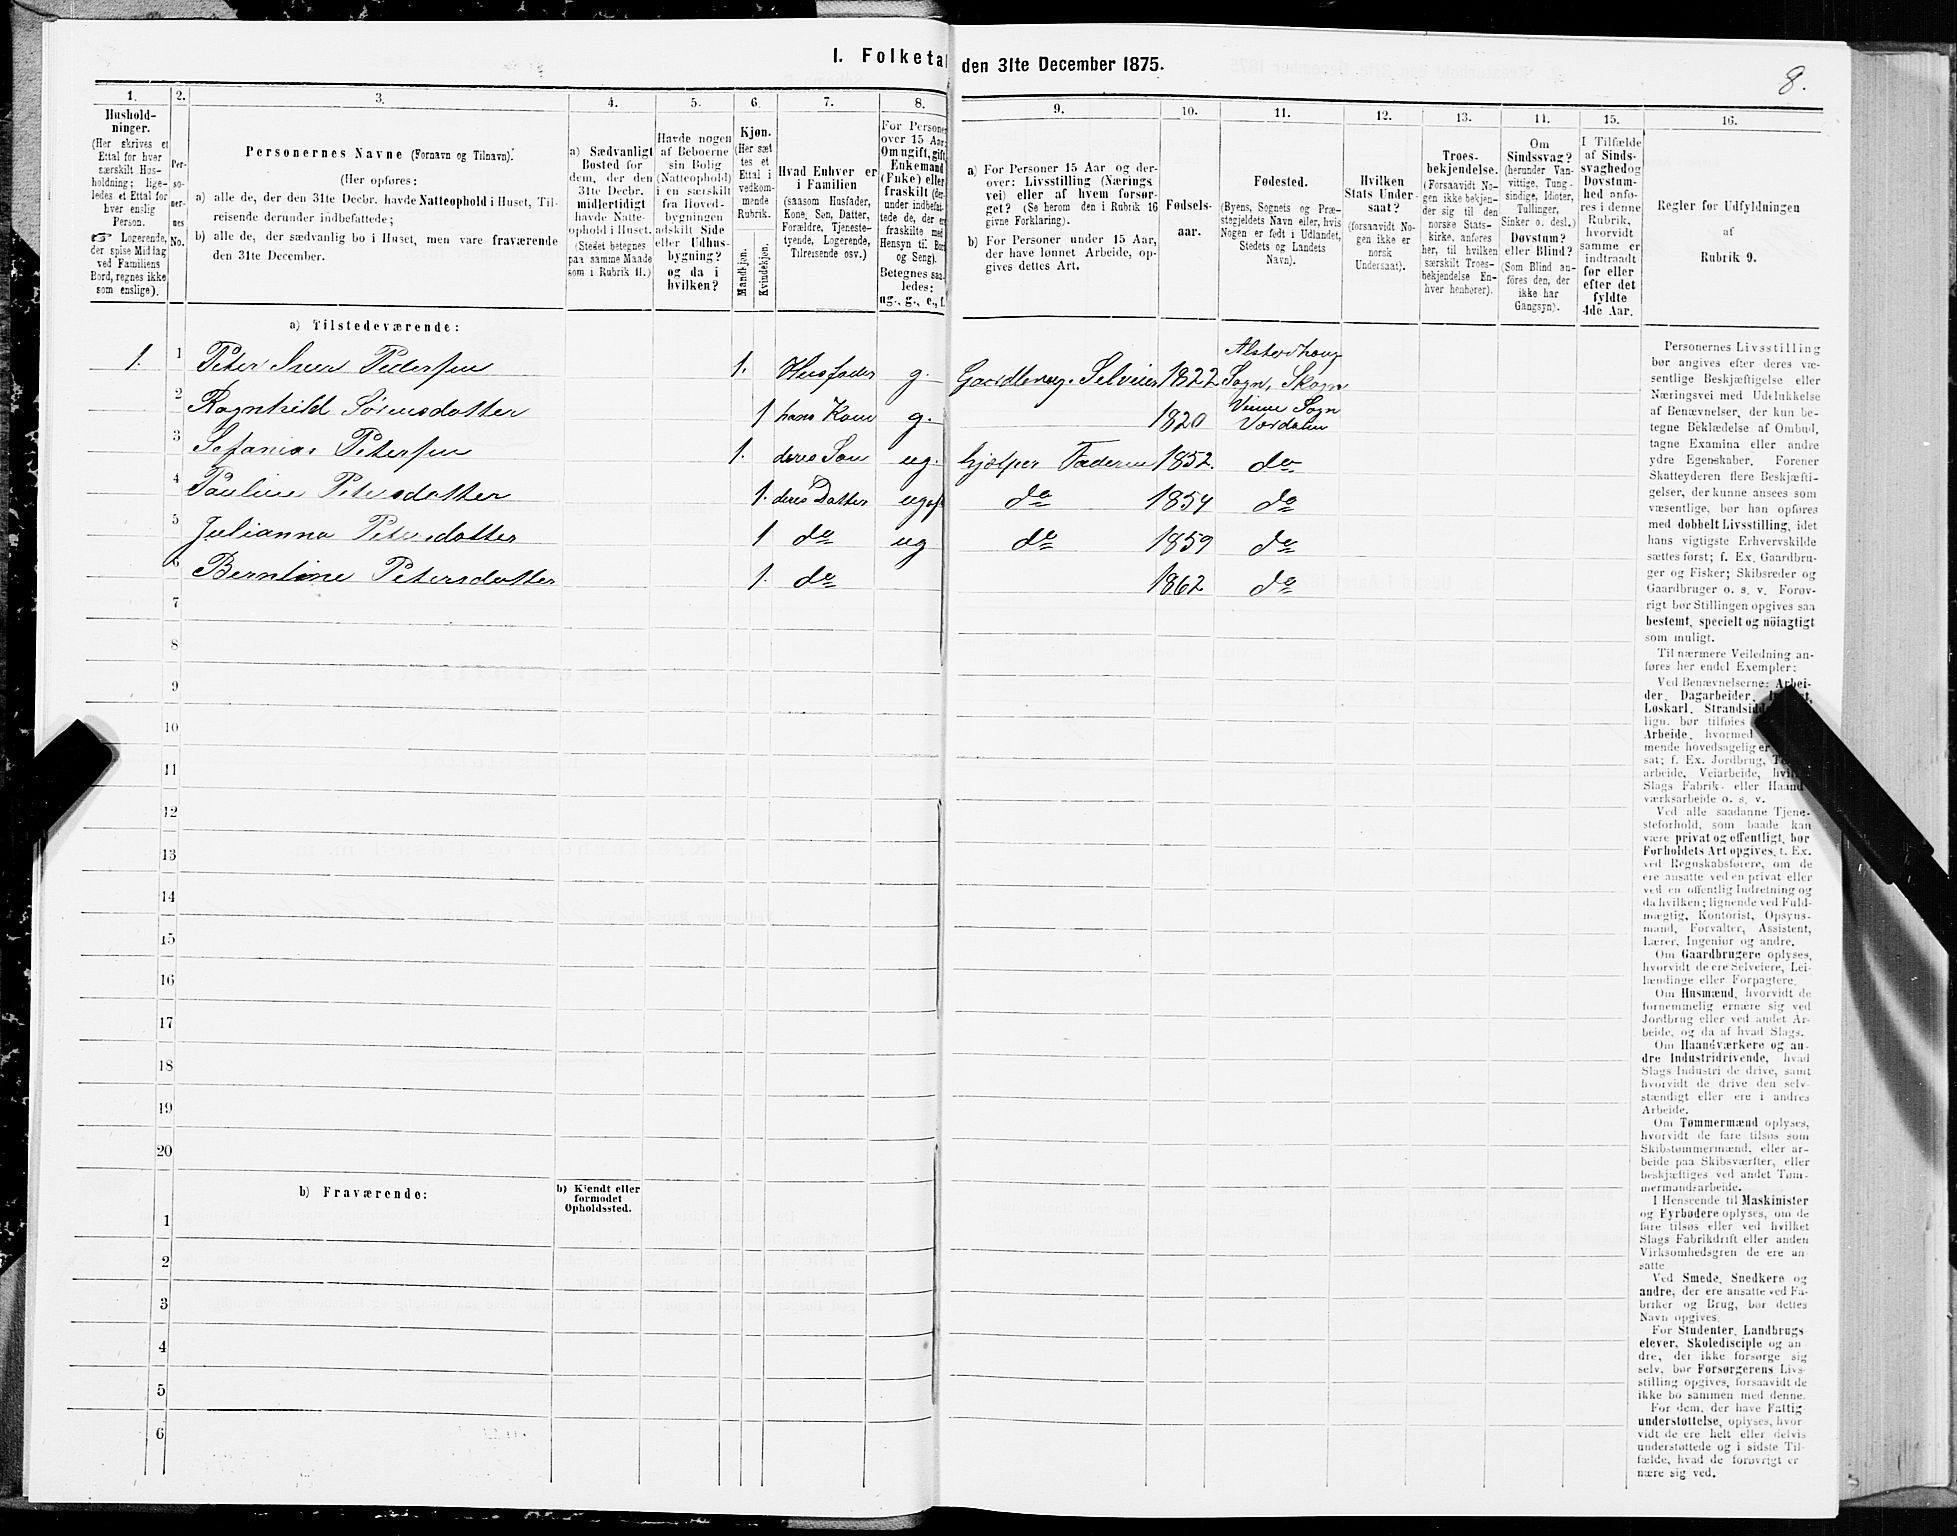 I. Folketal
den 31te December 1875.
8.
1.
Hushold-
ninger.
(Her skrives et
Ettal for hver
særskilt Hus-
holdning; lige-
ledes et Ettal for
hver enslig
Person.
☞ Logerende,
der spise Middag
ved Familiens
Bord, regnes ikke
som enslige).
2.
Per-
so-
ner-
nes
No.
3.
Personernes Navne (Fornavn og Tilnavn).
(Her opføres:
a) alle de, der den 31te Decbr. havde Natteophold i Huset, Til-
reisende derunder indbefattede;
b) alle de, der sædvanlig bo i Huset, men vare fraværende
den 31te December.
4.
a) Sædvanligt
Bosted for
dem, der den
31te Decbr.
midlertidigt
havde Natte-
ophold i Huset.
(Stedet betegnes
paa samme Maade
som i Rubrik 11.)
5.
Havde nogen
af Beboerne
sin Bolig
(Natteophold)
i en særskilt
fra Hoved-
bygningen
adskilt Side
eller Udhus-
bygning?
og da i
hvilken?
6.
Kjøn.
(Her sæt
tes et
Ettal i
vedkom-
mende
Rubrik.
Mandkjøn.
Kvindekjøn.
7.
Hvad Enhver er
i Familien
(saasom Husfader,
Kone, Søn, Datter,
Forældre, Tjeneste-
tyende, Logerende,
Tilreisende osv.)
8.
For Personer
over 15 Aar:
Om ugift, gift,
Enkemand
(Enke) eller
fraskilt (der-
under indbefat-
tede de, der er
fraskilte med
Hensyn til Bord
og Seng).
Betegnes saa-
ledes:
ug., g., e., f.
9.
a) For Personer 15 Aar og der-
over: Livsstilling (Nærings
vei) eller af hvem forsør-
get? (Se herom den i Rubrik 16
givne Forklaring).
b) For Personer under 15 Aar,
der have lønnet Arbeide, op-
gives dettes Art.
10.
Fødsels-
aar.
11.
Fødested.
(Byens, Sognets og Præ-
stegjeldets Navn eller, hvis
Nogen er født i Udlandet,
Stedets og Landets
Navn).
12.
Hvilken
Stats Under-
saat?
(forsaavidt No-
gen ikke er
norsk
Undersaat).
13.
Troes-
bekjendelse.
(Forsaavidt No-
gen ikke bekjen-
der sig til den
norske Stats-
kirke, anføres
her, til hvilken
særskilt Troes-
bekjendelse En-
hver henhører).
14.
Om
Sindssvag?
(herunder Van-
vittige, Tung-
sindige, Idioter,
Tullinger,
Sinker o. desl.)
Døvstum?
eller Blind?
(Som Blind an-
føres den, der
ikke har
Gangsyn).
15.
I Tilfælde
af Sinds-
svaghed og
Døvstum-
hed anfø-
res i denne
Rubrik,
hvorvidt
samme er
indtraadt
før eller
efter det
fyldte
4de Aar.
16.
Regler for Udfyldningen
af
Rubrik 9.
a) Tilstedeværende:
1. 1 Peter Petersen 1. Husfader g. Gaardbrug. Selveier 1822 Alstadhoug Sogn, Skogn
2 Ragnhild Sørensdatter 1 hans Kone g. 1820 Vinne Sogn Værdalen
3 Sefanias Petersen 1. deres Søn ug. hjælper Faderen 1852. do
4 Pauline Petersdatter 1. deres Datter ug do 1854 do
5 Julianna Petersdatter 1 do ug do 1859 do
6 Berntine Petersdatter 1. do 1862 do
7
8
9
10
11
12
13
14
15
16
17
18
19
20
b) Fraværende:
b) Kjendt eller
formodet
Opholdssted.
1
2
3
4
5
6
Personernes Livsstilling
bør angives efter deres væ-
sentlige Beskjæftigelse eller
Næringsvei med Udelukkelse
af Benævnelser, der kun be-
tegne Beklædelse af Ombud,
tagne Examina eller andre
ydre Egenskaber. Forener
Skatteyderen flere Beskjæfti-
gelser, der kunne ansees som
væsentlige, bør han opføres
med dobbelt Livsstilling, idet
hans vigtigste Erhvervskilde
sættes først; f. Ex. Gaardbru-
ger og Fisker; Skibsreder og
Gaardbruger o. s. v. Forøv-
rigt bør Stillingen opgives saa
bestemt, specielt og nöiagtigt
som muligt.
Til nærmere Veiledning an-
føres her endel Exempler:
Ved Benævnelserne: Arbei-
der, Dagarbeider,
Løskarl, Strandsidder
lign. bør tilføies
Arbeide, hvormed
mende hovedsagelig er
sat; f. Ex. Jordbrug,
arbeide, Veiarbeide,
Slags Fabrik- eller Haand-
værksarbeide o. s. v.
Ved alle saadanne Tjene-
steforhold, som baade kan
være privat og offentligt, bør
Forholdets Art opgives, t. Ex.
ved Regnskabsførere, om de
ere ansatte ved en privat eller
ved en offentlig Indretning og
da hvilken; lignende ved Fuld-
mægtig, Kontorist, Opsyns-
mand, Forvalter, Assistent,
Lærer, Ingeniør og andre.
Om Gaardbrugere oplyses,
hvorvidt de ere Selveiere, Lei-
lændinge eller Forpagtere.
Om Husmænd, hvorvidt de
fornemmelig ernære sig ved
Jordbrug eller ved andet Ar-
beide, og da af hvad Slags.
Om Haandværkere og an-
dre Industridrivende, hvad
Slags Industri de drive, samt
hvorvidt de drive den selv-
stændigt eller ere i andres
Arbeide.
Om Tømmermænd oplyses,
hvorvidt de fare tilsøs som
Skibstømmermænd, eller ar-
beide paa Skibsværfter, eller
beskjæftiges ved andet Tøm-
mermandsarbeide.
I Henseende til Maskinister
og Fyrbødere oplyses, om de
fare tilsøs eller ved hvilket
Slags Fabrikdrift eller anden
Virksomhedsgren de ere an-
satte.
Ved Smede, Snedkere og
andre, der ere ansatte ved Fa-
briker og Brug, bør dettes
Navn opgives.
For Studenter, Landbrugs
elever, Skoledisciple og an
dre, der ikke forsørge sig
selv, bør Forsørgerens Livs-
stilling opgives, forsaavidt de
ikke bo sammen med denne.
For dem, der have Fattig
understøttelse, oplyses, hvor
vidt de ere helt eller delvis
understøttede og i sidste Til-
fælde, hvad de forøvrigt er
nære sig ved.